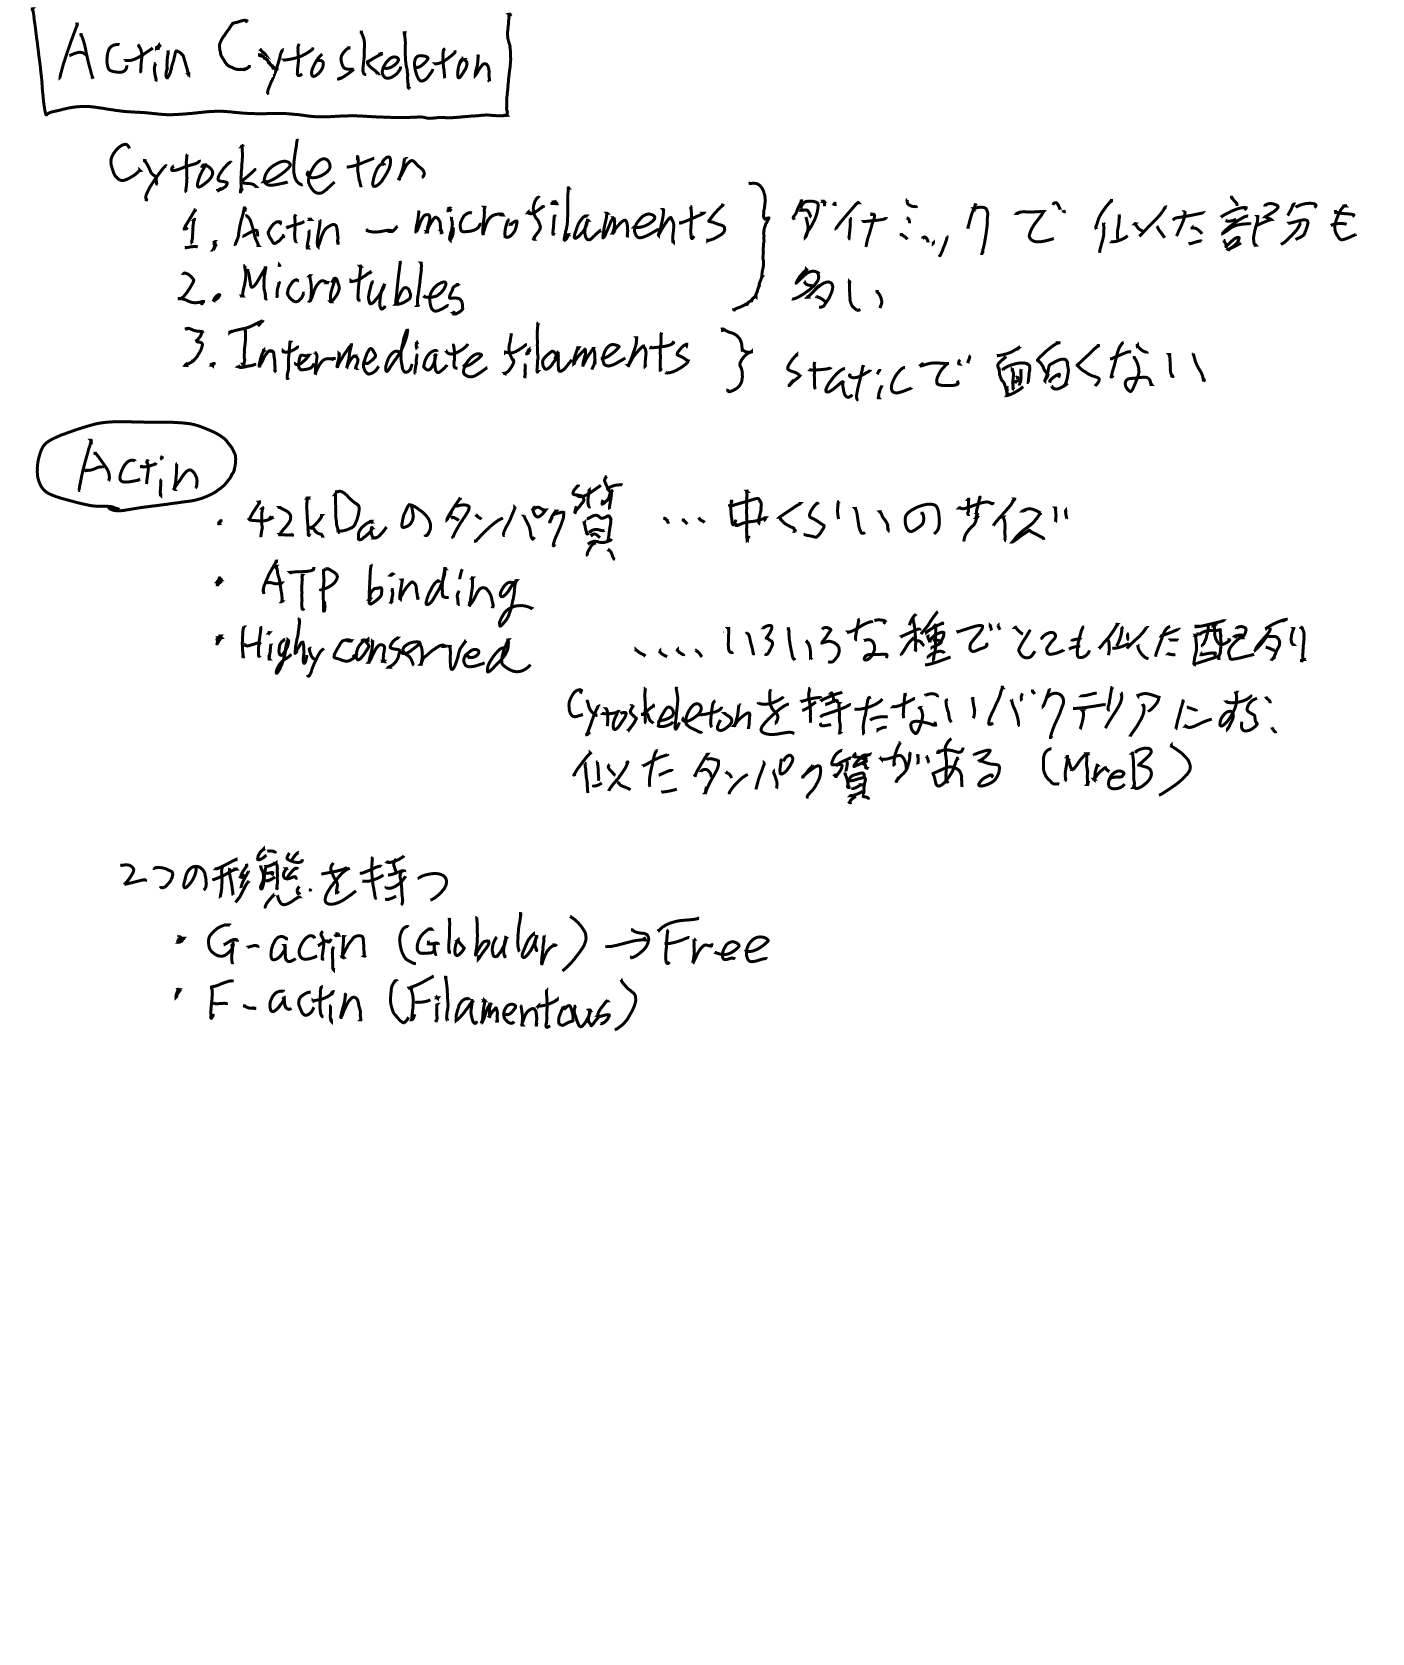 Actin Cytoskeleton
Cytoskeleton
1. Actin – microfilaments } ダイナミックで似た部分も
2. Microtubles 多い
3. Intermediate filaments } staticで面白くない
Actin
・42kDaのタンパク質 … 中くらいのサイズ
・ATP binding
・Highy conserved .... いろいろな種でとても似た配列
Cytoskeletonを持たないバクテリアにすら、
似たタンパク質がある (MreB)
2つの形態を持つ
・G-actin (Globular) → Free
・F-actin (Filamentous)